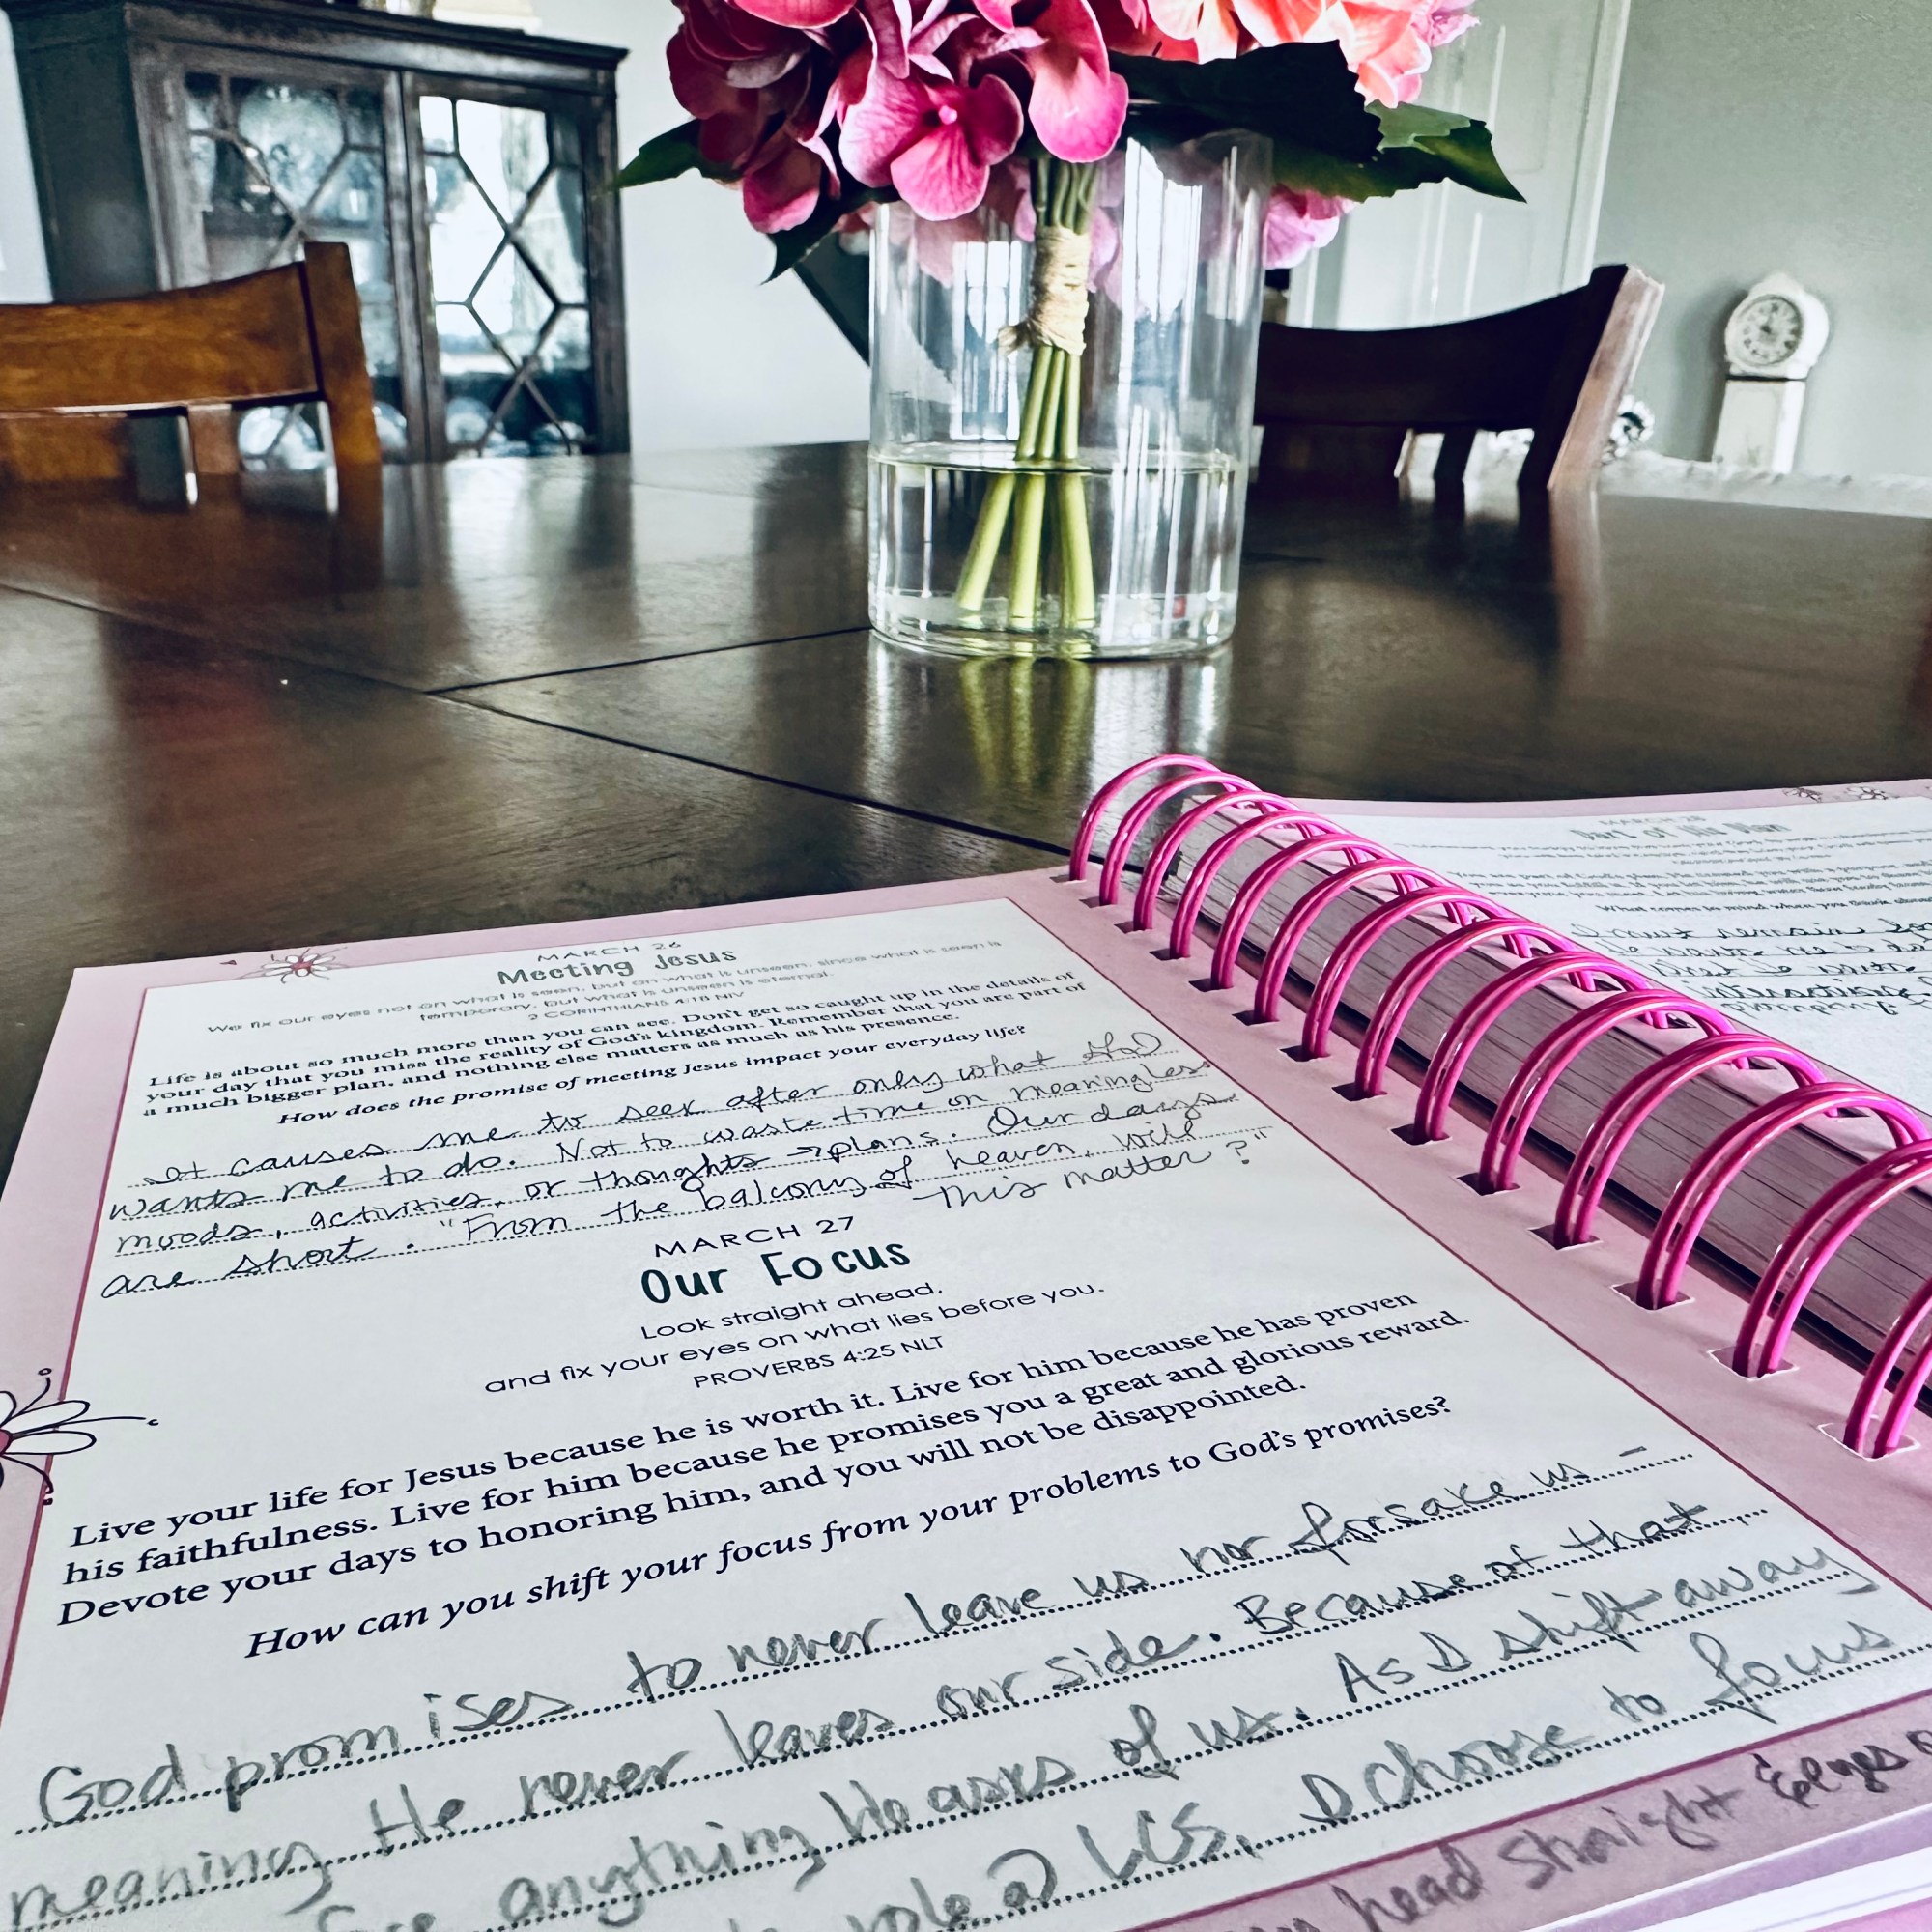 MARCH 26
Meeting Jesus
We fix our eyes not on what is seen, but on what is unseen, since what is seen is
temporary, but what is unseen is eternal.
2 CORINTHIANS 4:18 NIV
Life is about so much more than you can see. Don't get so caught up in the details of
your day that you miss the reality of God's kingdom. Remember that you are part of
a much bigger plan, and nothing else matters as much as his presence.
How does the promise of meeting Jesus impact your everyday life?
It causes me to seek after only what God
wants me to do. Not to waste time on meaningless
moods, activities, or thoughts → plans. Our days
are short. "From the balcony of heaven, will
this matter?"
MARCH 27
Our Focus
Look straight ahead,
and fix your eyes on what lies before you.
PROVERBS 4:25 NLT
Live your life for Jesus because he is worth it. Live for him because he has proven
his faithfulness. Live for him because he promises you a great and glorious reward.
Devote your days to honoring him, and you will not be disappointed.
How can you shift your focus from your problems to God's promises?
God promises to never leave us nor forsake us -
meaning He never leaves our side. Because of that
anything He asks of us. As I shift away
role @ LCS, I choose to focus
head straight & eyes
MARCH 28
Part of His Plan
What comes to mind when you think about
I must remain